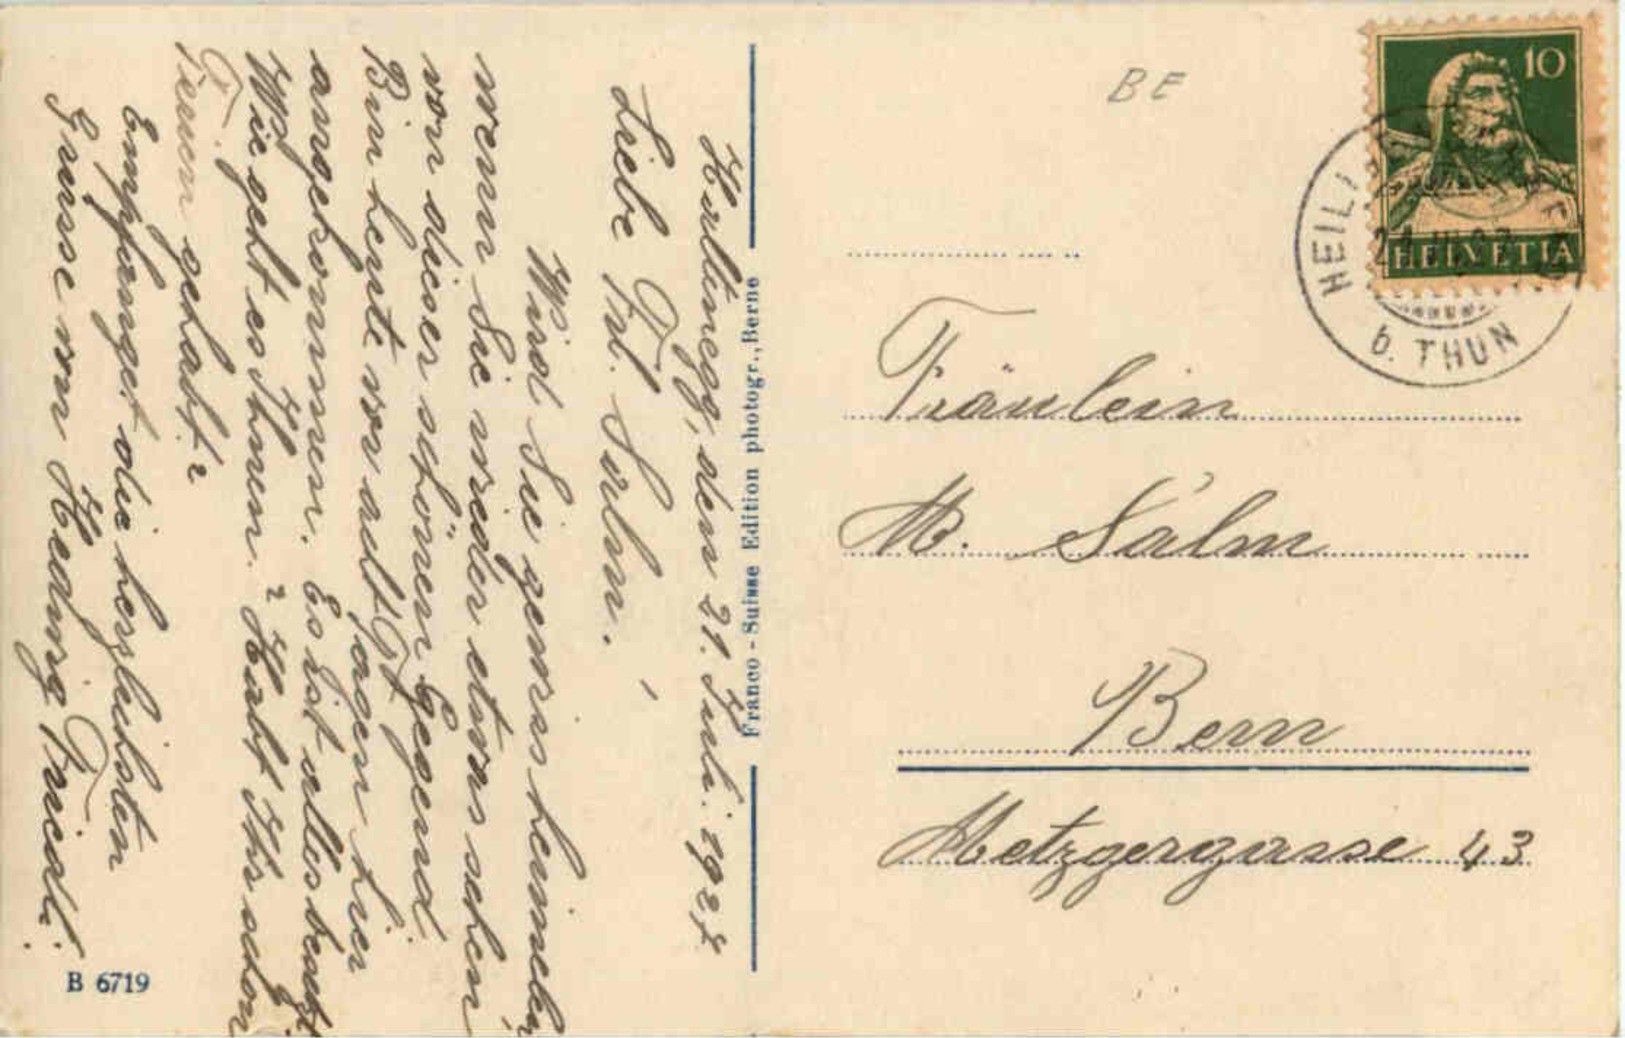 Hartlinegg, den 21. Juli. 1927.
Liebe Frl. Salm.
Wird Sie gewiss heimelen,
wenn Sie wieder etwas sehen
von dieser schönen Gegend.
Bin heute vor acht Tagen hier
angekommen. Es ist alles besetzt
Wie geht es Ihnen? Habt Ihr schon
Ferien gehabt?
Empfanget die herzlichsten
Grüsse von Hedwig Friedli.
B 6719
Franco-Suisse Edition photogr., Berne
BE
10
HELVETIA
HEILI
b. THUN
Fräulein
M. Sälm
Bern
Metzgergasse 43